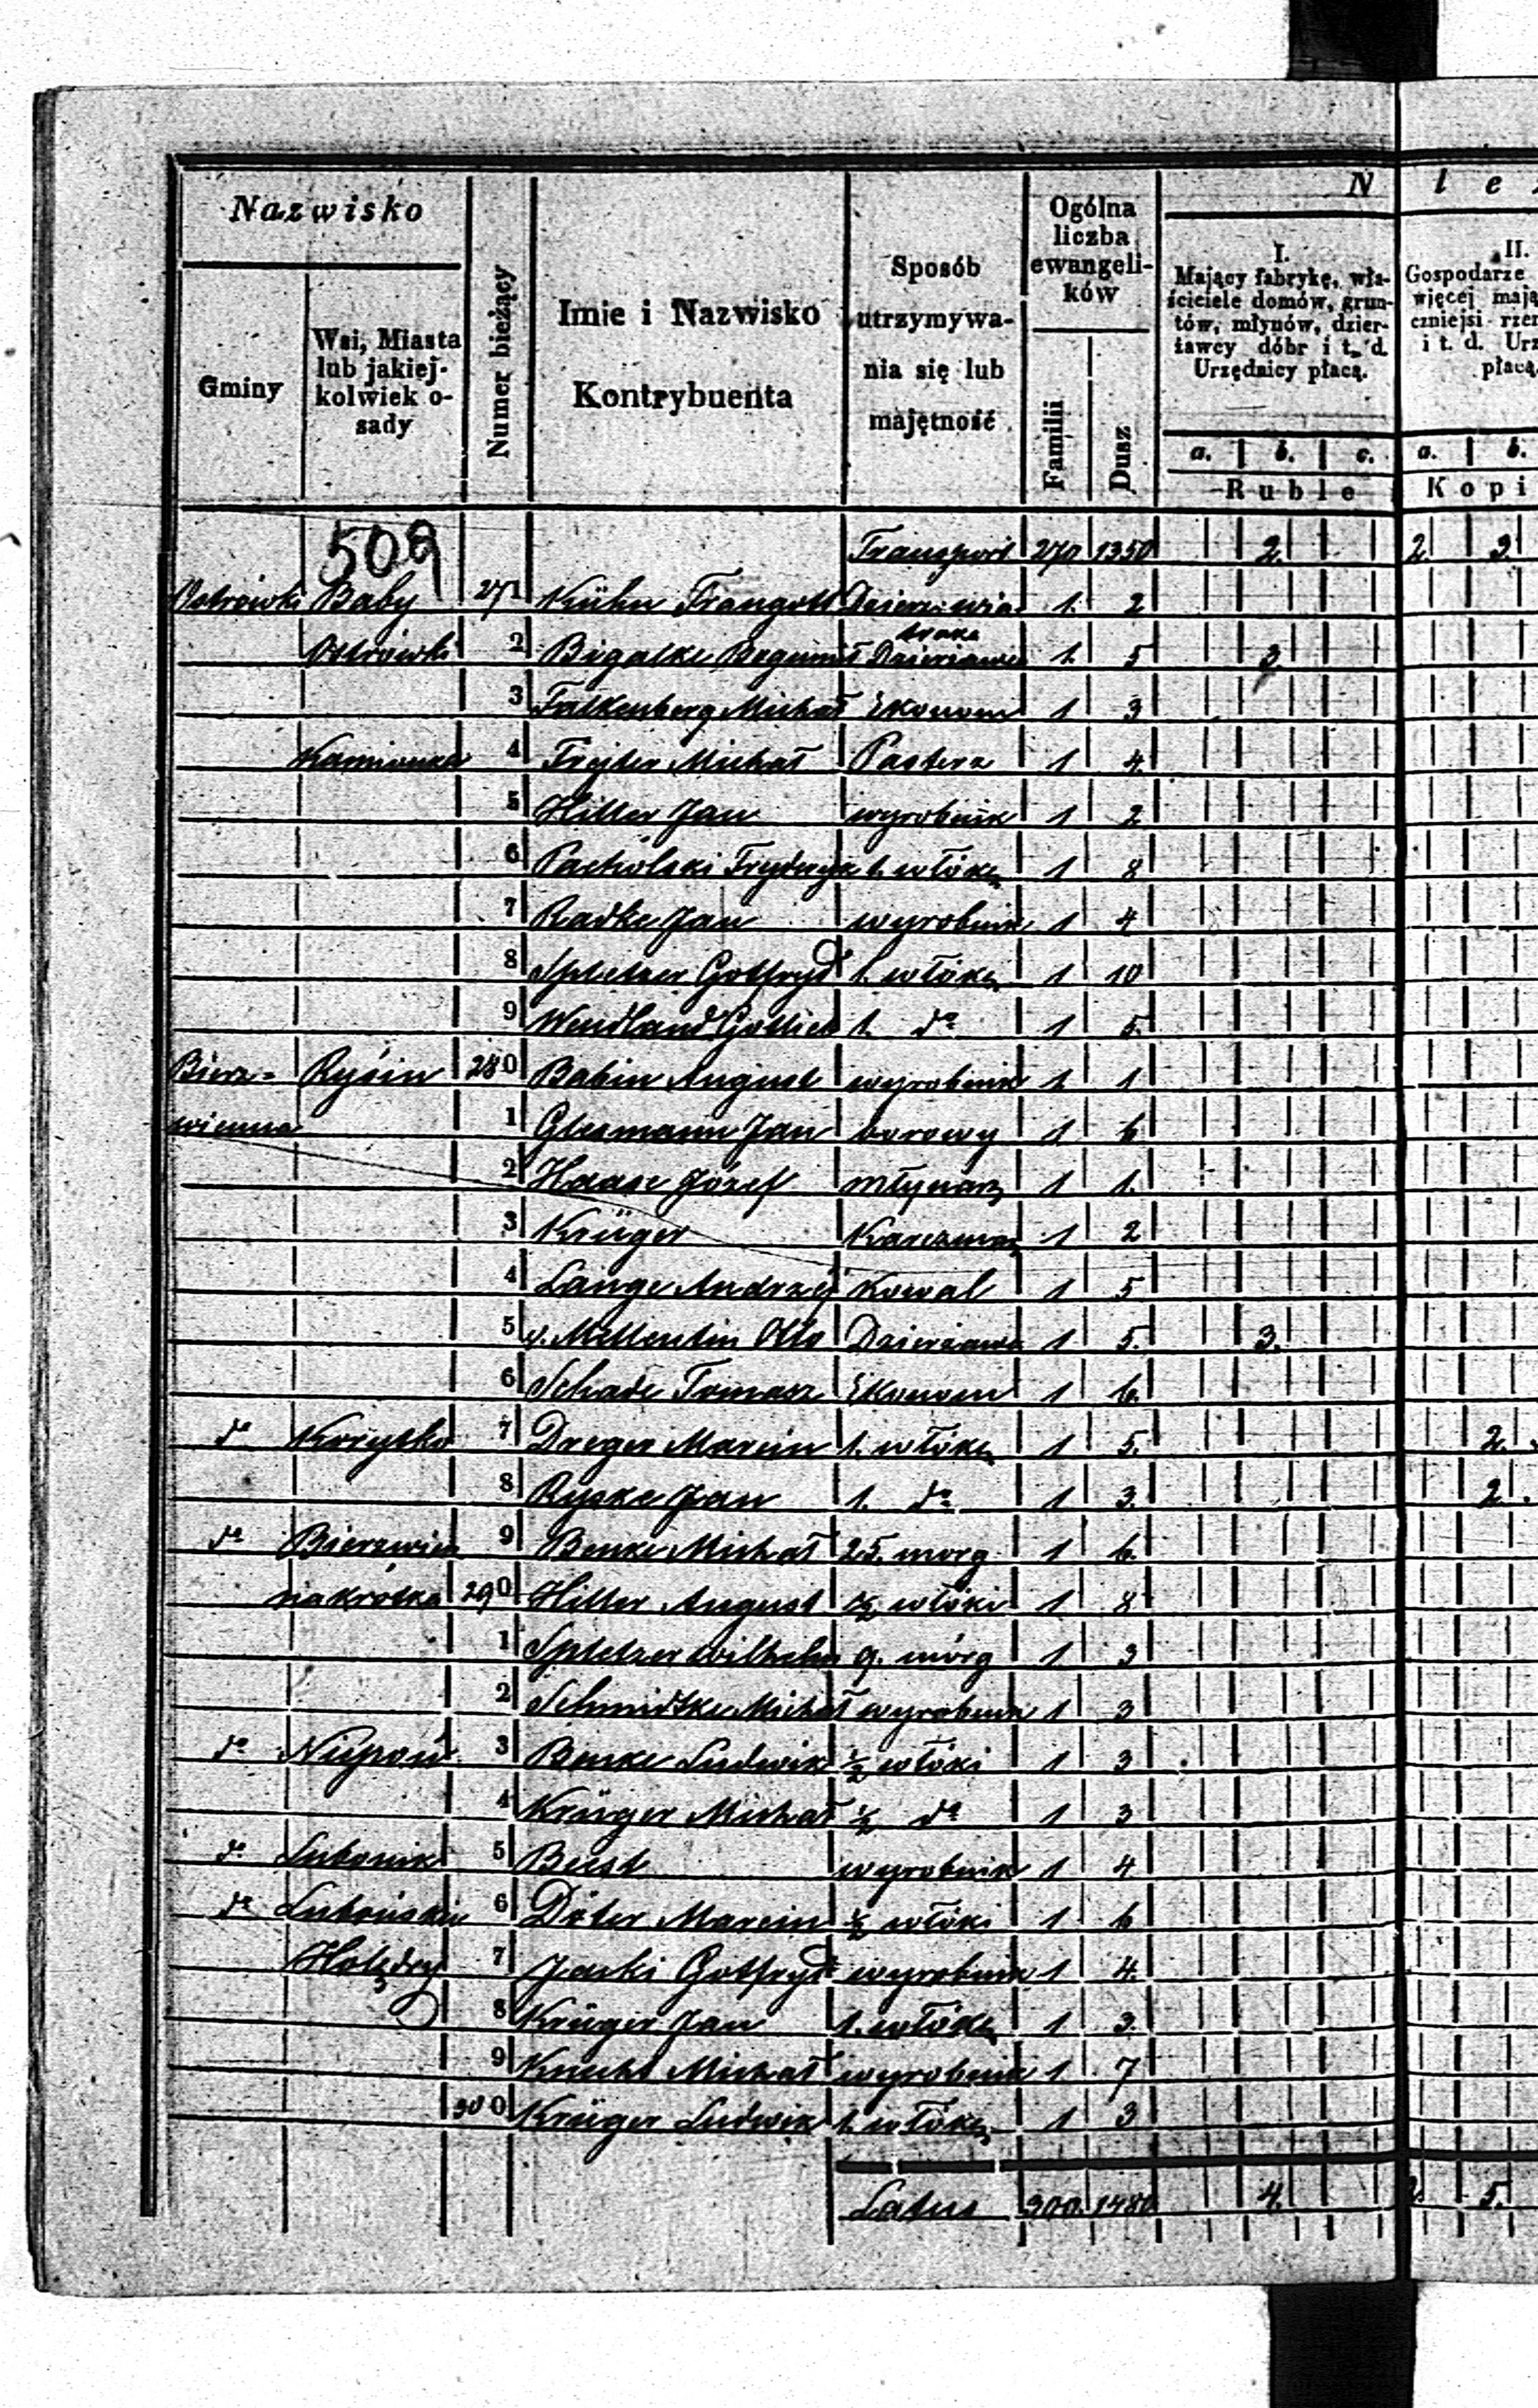 Nazwisko
Gminy
Wsi, Miasta
lub jakiej-
kolwiek o-
sady
Numer bieżący
Imie i Nazwisko
Kontrybuenta
Sposób
utrzymywa-
nia się lub
majętność
Ogólna
liczba
ewangeli-
ków
Familii
Dusz
N l e
I.
Mający fabrykę, wła-
ściciele domów, grun-
tów, młynów, dzier-
żawcy dóbr i t. d.
Urzędnicy płacą.
a. b. c.
Ruble
II.
Gospodarze
więcej mają
czniejsi rzem
i t. d. Urz
płacą
a. b.
Kopi
509 Transport 270 1350 2. 2. 3
Ostrówki Baby 271 Kühn Traugott 1. 2
Ostrówki 2 Bigalke Bogumił Dzierżawca 1. 5 3
3 Falkenberg Michał Ekonom 1 3
Kamionka 4 Frejter Michał Pasterz 1 4.
5 Hiller Jan wyrobnik 1 2
6 Pacholski Fryderyk 1. włókę 1 8
7 Radke Jan wyrobnik 1 4
8 Spletzer Gotfryd 1. włókę 1 10
9 Wendland Gottlieb 1. do 1 5.
Bierz- Rysin 280 Babin August wyrobnik 1. 1
wienna 1 Glesmann Jan borowy 1 6
2 Haase Józef młynarz 1 1.
3 Krüger Karczmarz 1 2
4 Lange Andrzej Kowal 1 5
5 v. Mellentin Otto Dzierżawca 1 5. 3.
6 Schade Tomasz Ekonom 1 6.
do Korytka 7 Dreger Marcin 1. włókę 1 5. 2.
8 Ryske Jan 1. do 1 3. 2.
do Bierzwien 9 Benke Michał 25. morg 1 6.
na krótka 290 Hiller August ½ włóki 1 8
1 Spletzer Wilhelm 9. mórg 1 3
2 Schmidtke Michał wyrobnik 1 3
do 3 Benke Ludwik ½ włóki 1 3
4 Krüger Michał ½ do 1 3
do Lubonik 5 wyrobnik 1 4
do Lubońskie 6 Döter Marcin ½ włóki 1 6
Holędry 7 Jaski Gotfryd wyrobnik 1 4.
8 Krüger Jan 1. włókę 1 3.
9 Knecht Michał wyrobnik 1 7
300 Krüger Ludwik 1. włókę 1 3
Latus 300. 1480 4. 2. 5.